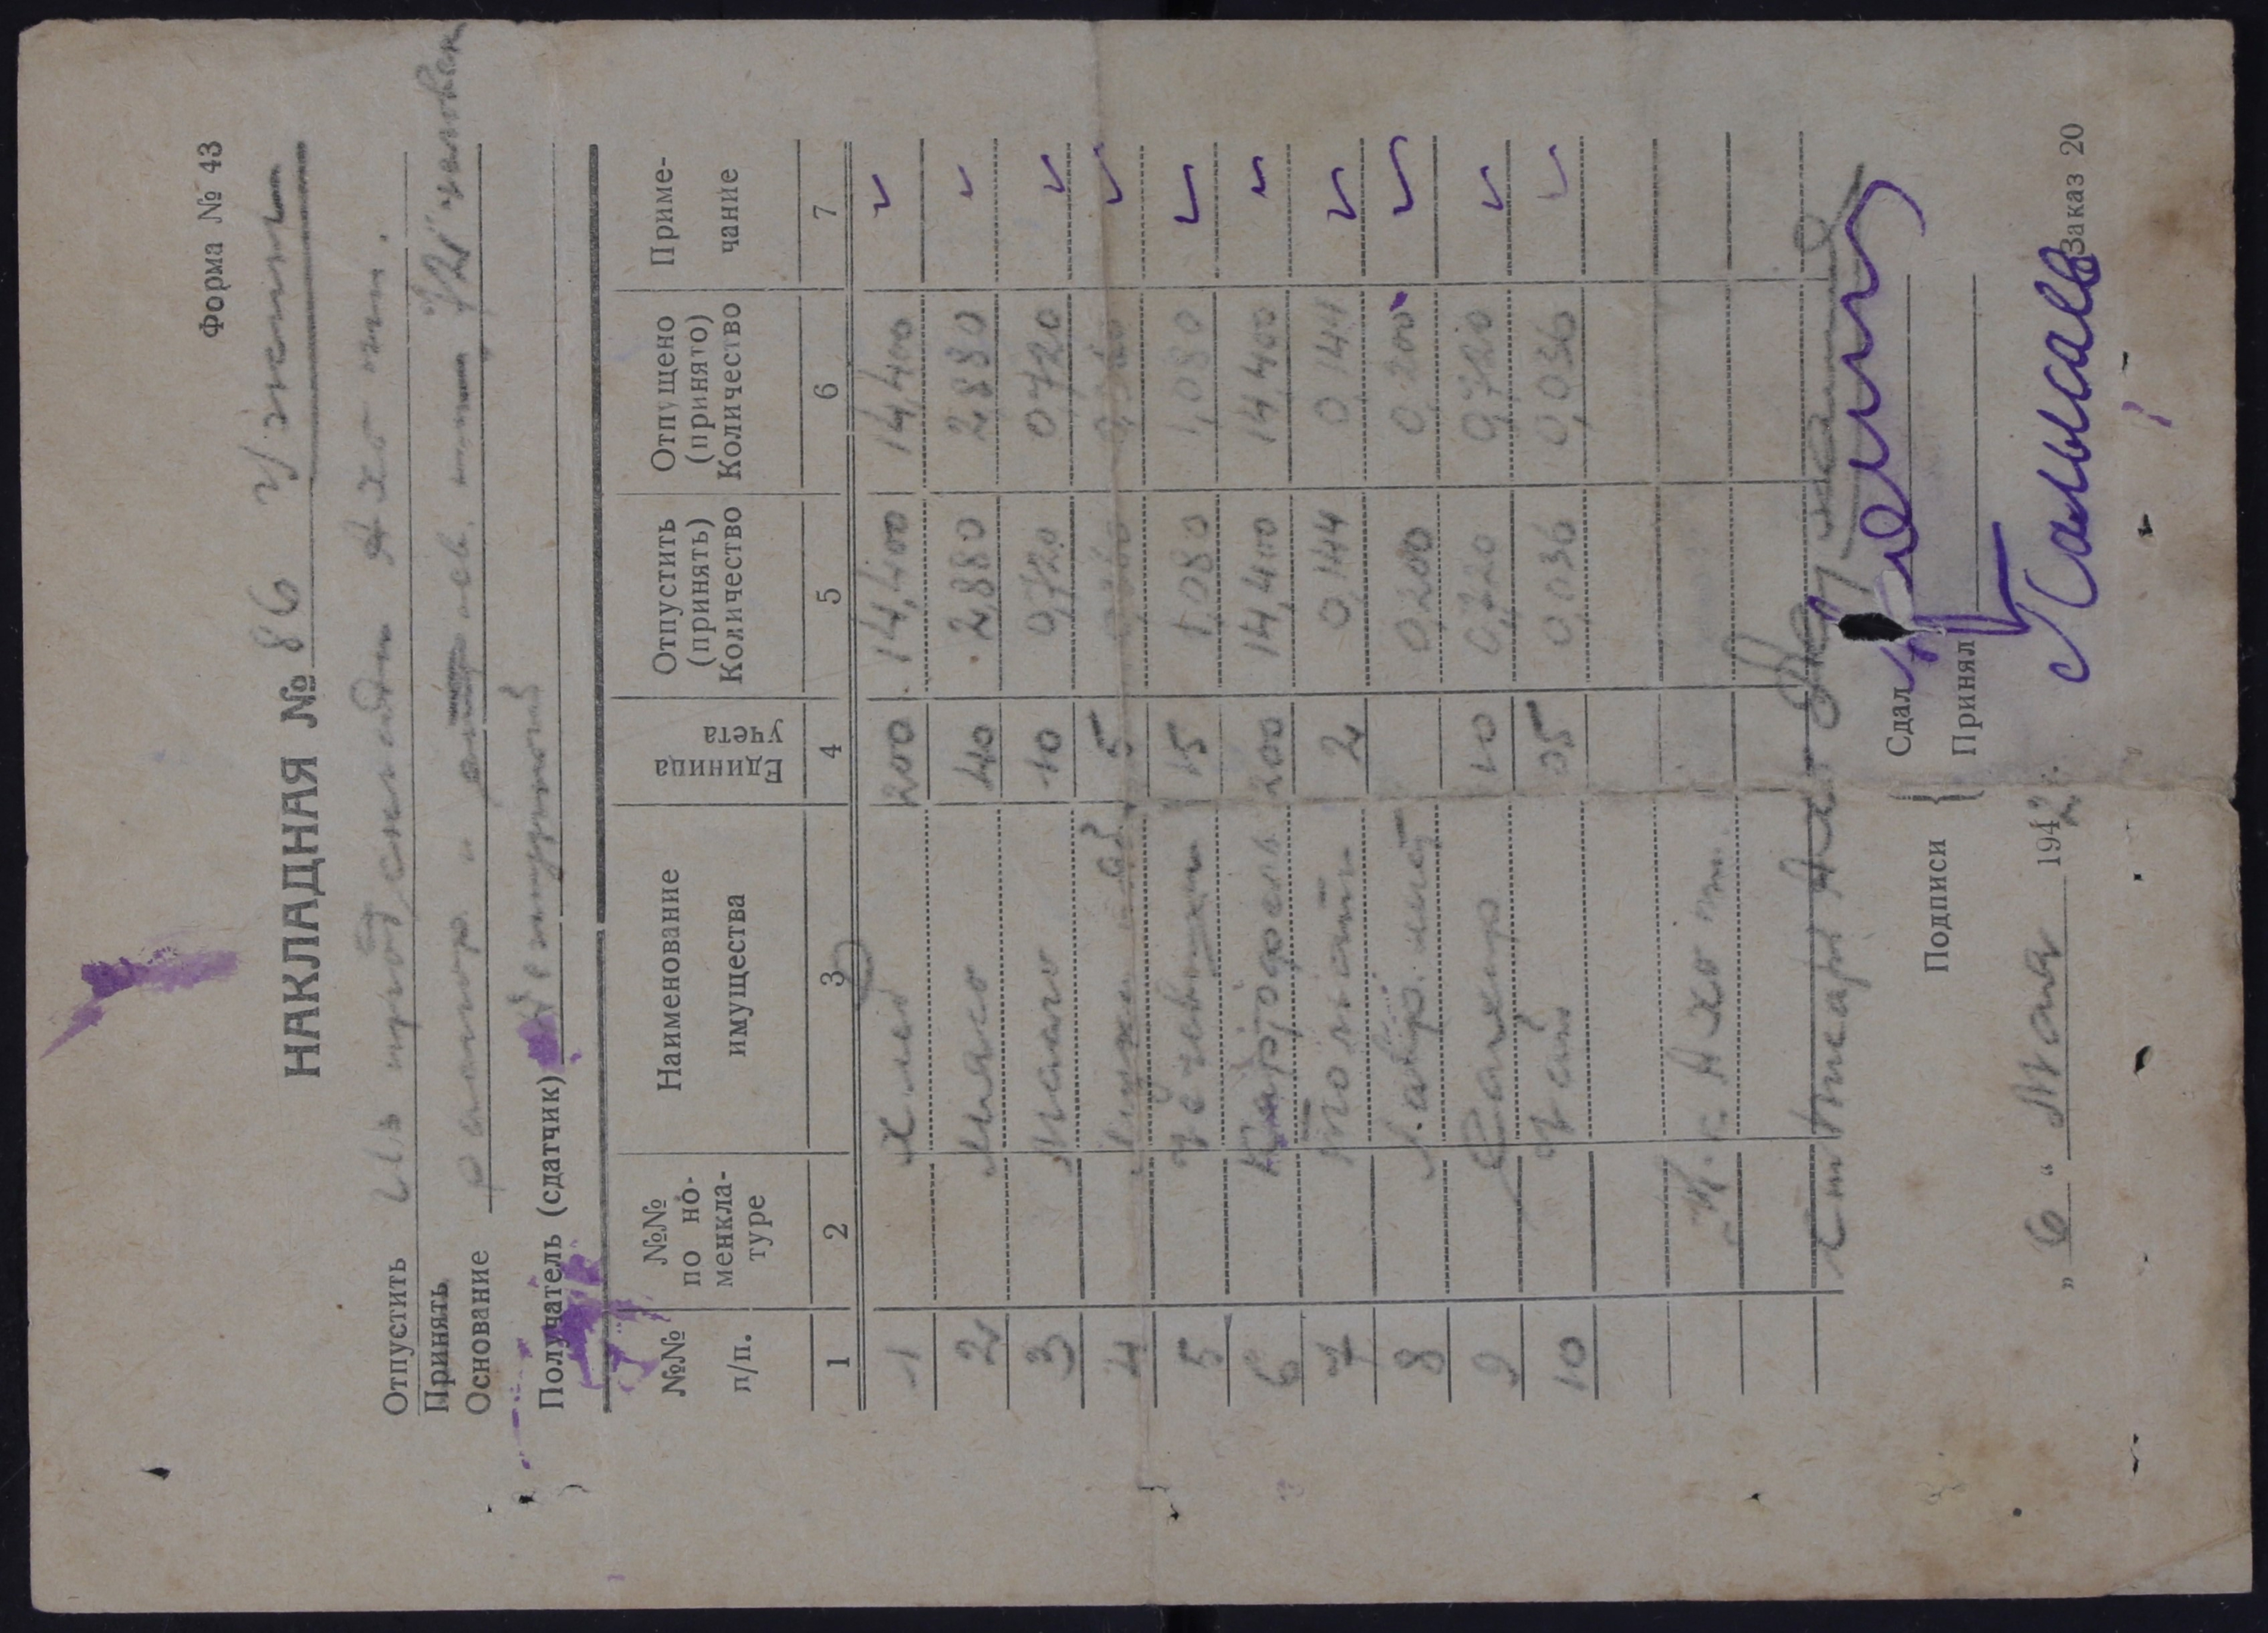 Форма № 43
НАКЛАДНАЯ № 86 Ужин
Отпустить Из прод склада Ахо
Принять
Основание 72 человек
Получатель (сдатчик)
№№ п/п. №№ по но- менкла- туре Наименование имущества Единица учета Отпустить (принять) Количество Отпущено (принято) Количество Приме- чание
1 2 3 4 5 6 7
1 Хлеб 200 14,400 14,400
2 Мясо 40 2,880 2,880
3 Масло 10 0,720 0,720
4 5 0,360 0,360
5 15 1,080 1,080
6 Картофель 200 14,400 14,400
7 Томат 2 0,144 0,144
8 Лавр. лист 0,200 0,200
9 Сахар 10 0,720 0,720
10 Чай 05 0,036 0,036
Ахо
Ст писарь Ахо
Подписи { Сдал
Принял
„ 6 “ Мая 1942 г.
Заказ 20